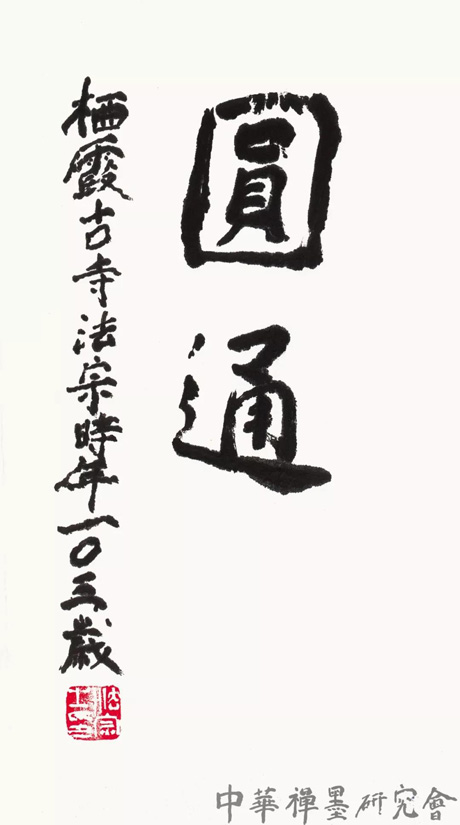 圓通
栖霞古寺法宗時年一〇三歲
中華禪墨研究會